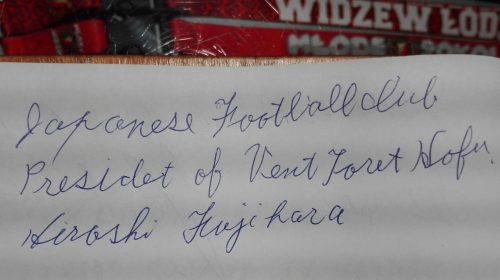 WIDZEW ŁÓD
MŁODE
Japanese Football club
Presidet of Vent Foret Hofu.
Hiroshi Fujihara